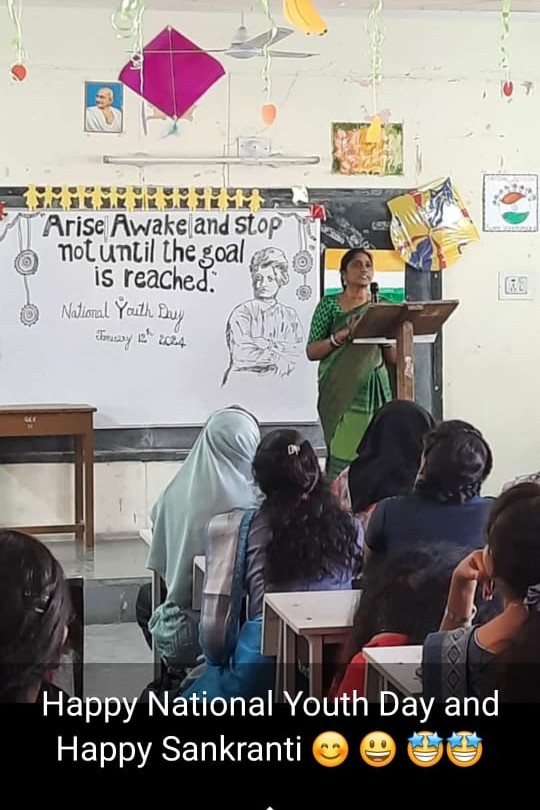 Arise, Awake and stop
not until the goal
is reached.
National Youth Day
January 12th 2024
Happy National Youth Day and
Happy Sankranti 😊 😃 🤩🤩